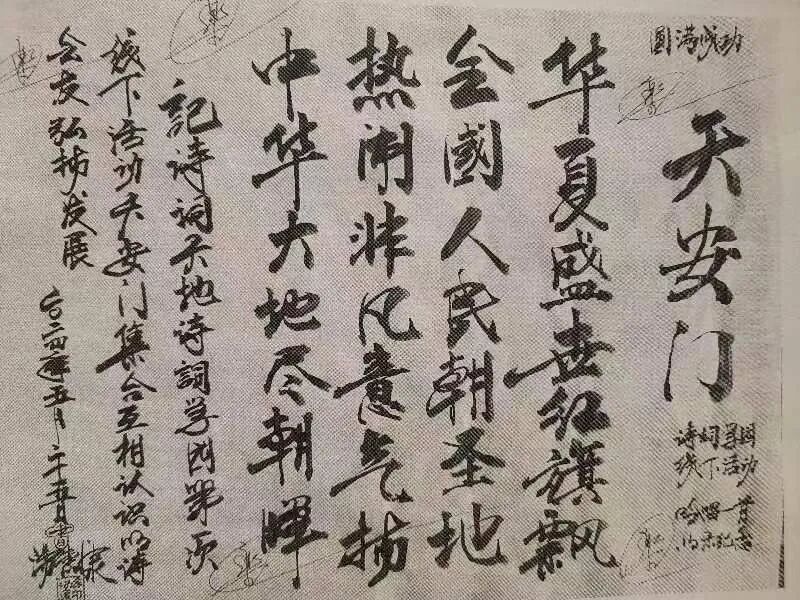 圆满成功
天安门
诗词学园
线下活动
吟唱一首
以示纪念
华夏盛世红旗飘
全國人民朝圣地
热闹非凡意气扬
中华大地尽朝晖
記诗词天地诗詞学园第次
线下活动天安门集合互相认识以诗
会友弘扬发展
二〇二四年五月二十五日